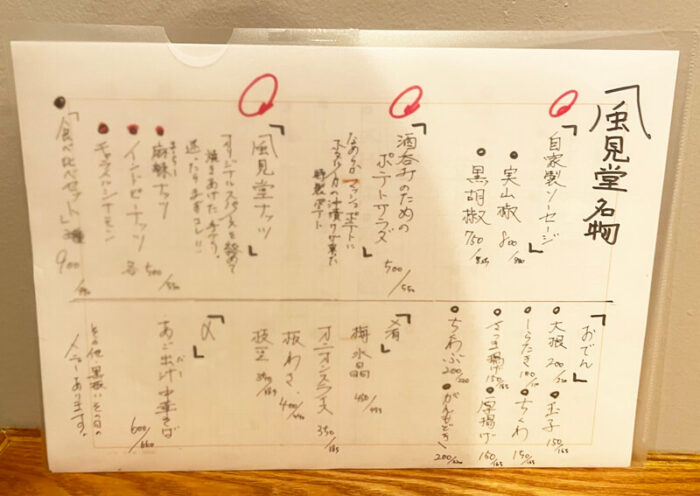 風見堂名物
「自家製ソーセージ」
実山椒 800/880
黒胡椒 750/825
「酒呑みのための
ポテトサラダ」 500/550
なめらかマッシュポテトに
ホタルイカの沖漬けが乗った
特製ポテト
「風見堂ナッツ」
オリジナルスパイスを絡めて
焼きあげたナッツ。
迷ったらまずコレ!!
麻辣ナッツ
インドピーナッツ 各500/550
キャラメルシナモン
「食べ比べセット」3種 900/990
「おでん」
大根 200/220
玉子 150/165
しらたき 100/110
ちくわ 150/165
さつま揚げ 150/165
厚揚げ 150/165
ちくわぶ 200/220
がんもどき 200/220
「肴」
梅水晶 450/495
オニオンスライス 350/385
板わさ 400/440
枝豆 350/385
「〆」
あご出汁中華そば 600/660
その他黒板にその日の
メニューあります。